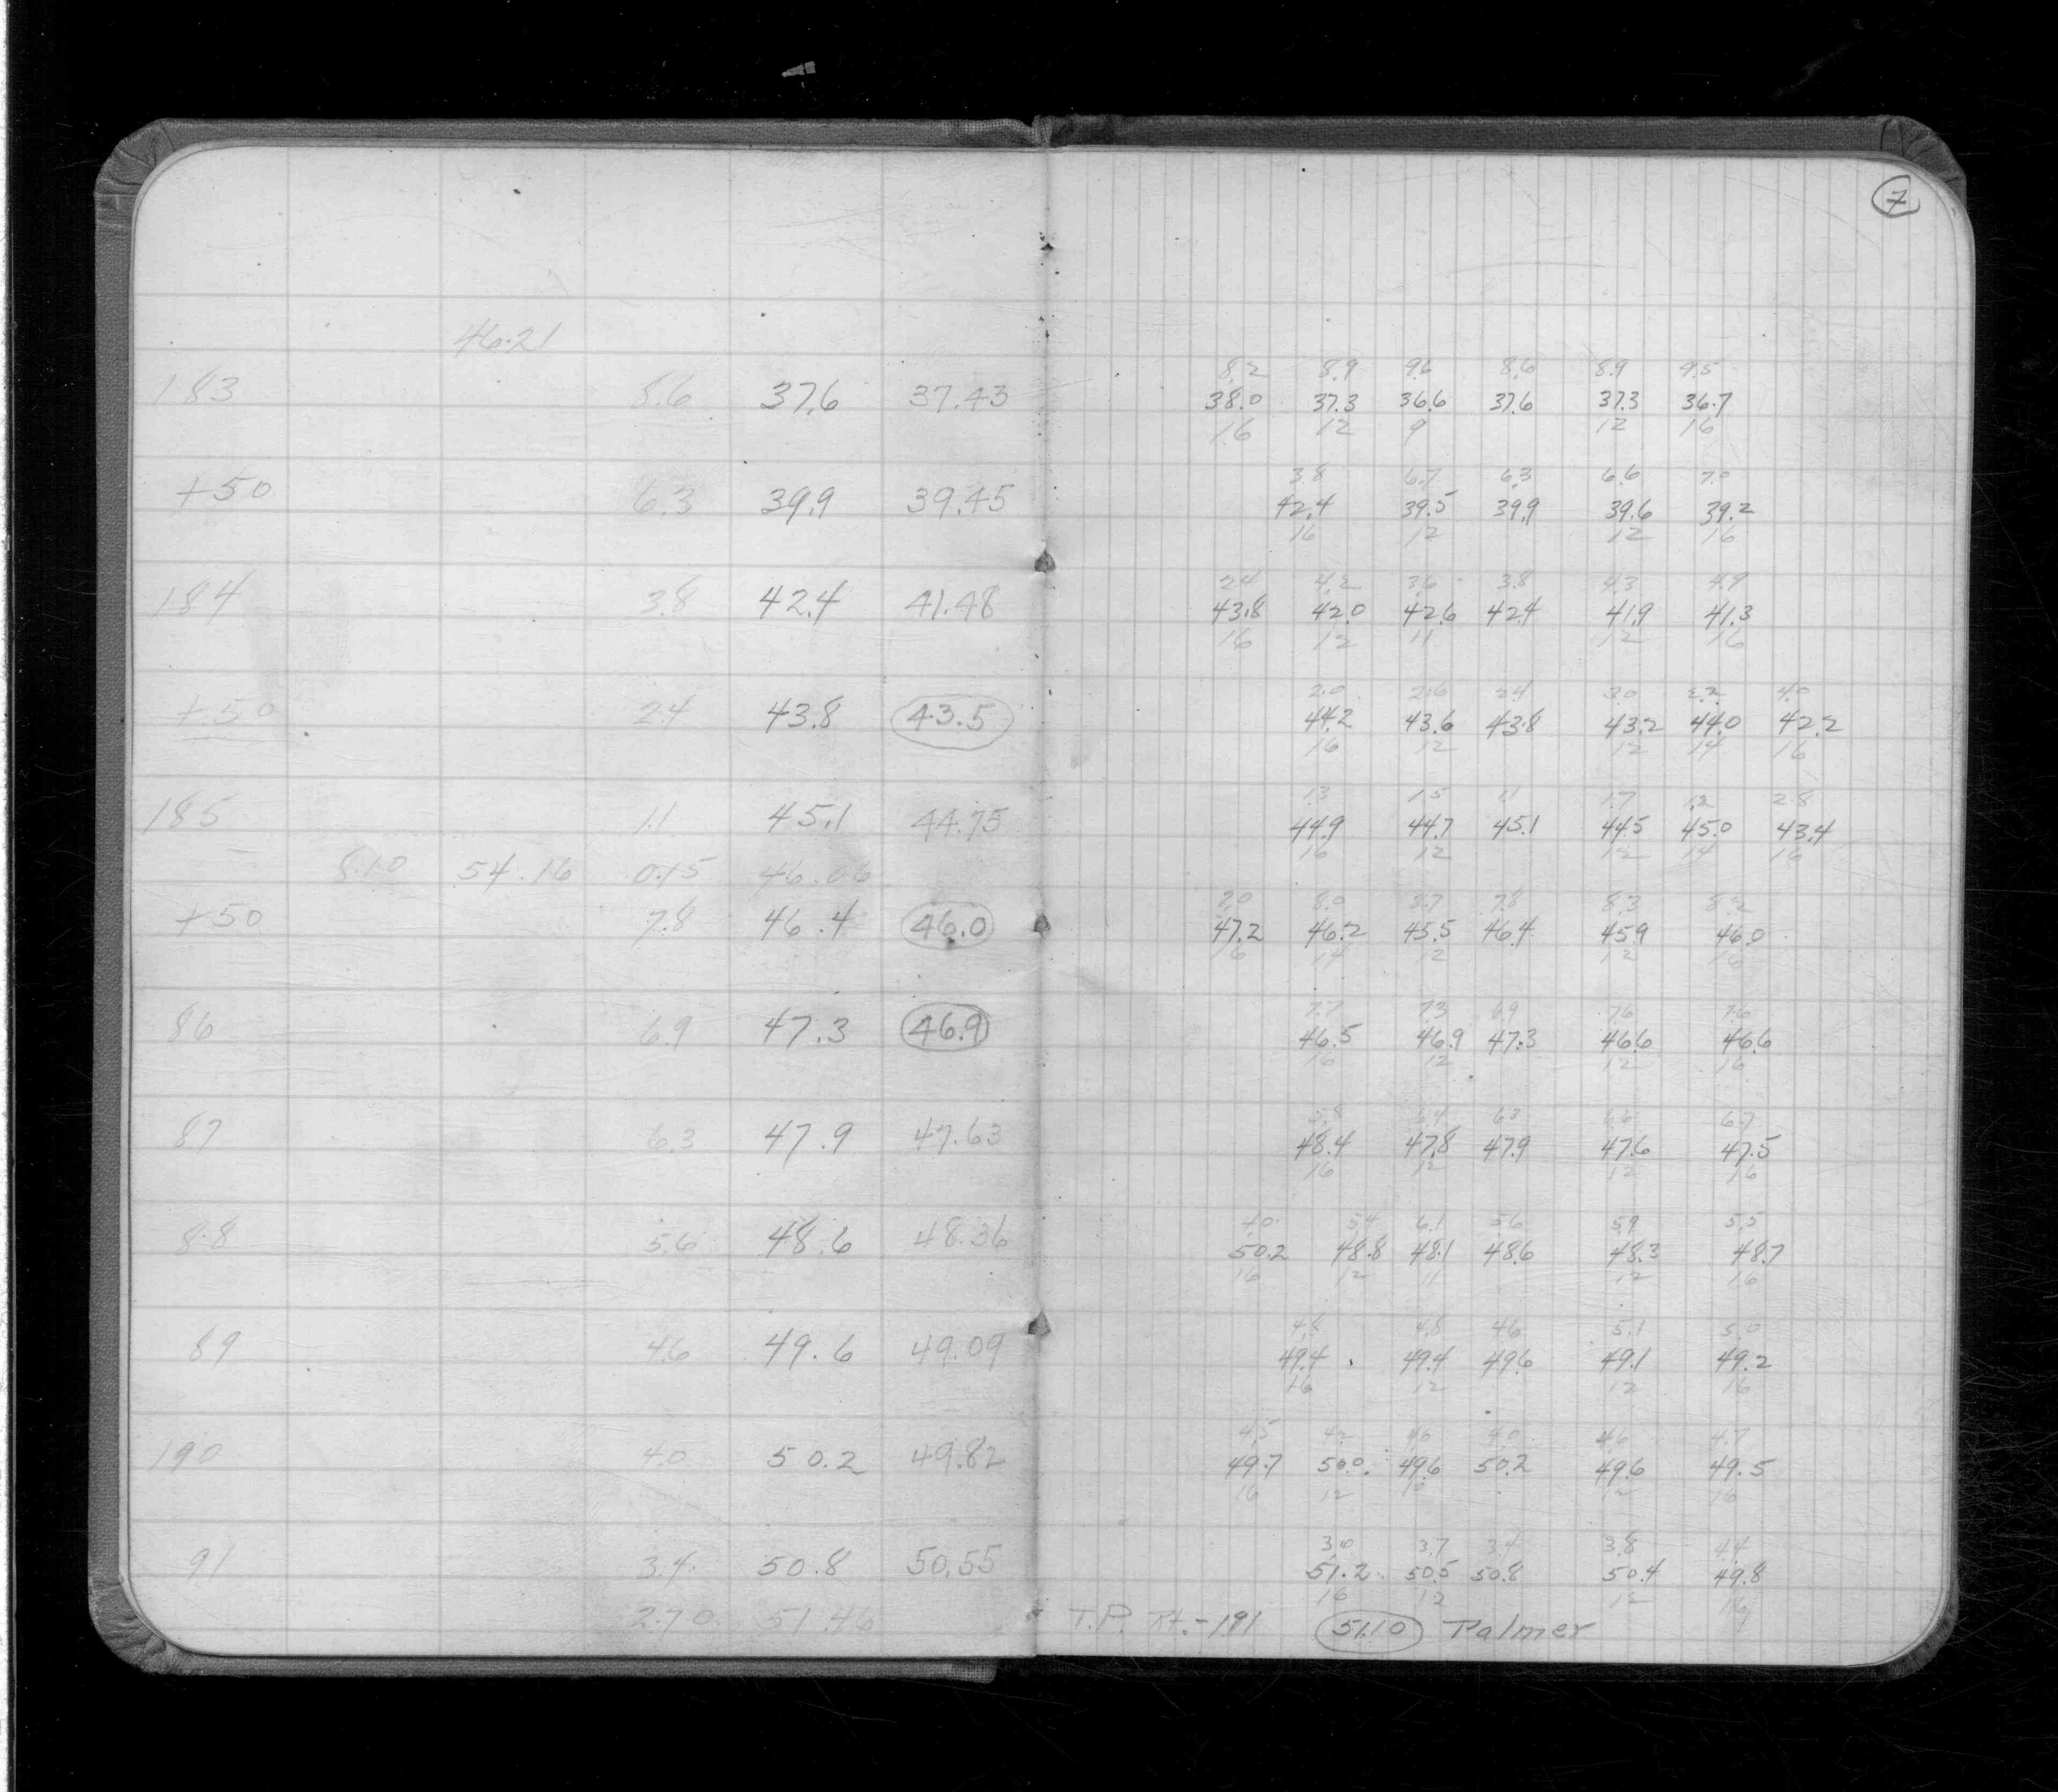 7
46.21
8.2 8.9 9.6 8.6 8.9 9.5
183 8.6 37.6 37.43 38.0 37.3 36.6 37.6 37.3 36.7
16 12 9 12 16
3.8 6.7 6.3 6.6 7.0
+50 6.3 39.9 39.45 42.4 39.5 39.9 39.6 39.2
16 12 12 16
2.4 4.2 3.6 3.8 4.3 4.9
184 3.8 42.4 41.48 43.8 42.0 42.6 42.4 41.9 41.3
16 12 11 12 16
2.0 2.6 2.4 3.0 2.2 4.0
+50 2.4 43.8 43.5 44.2 43.6 43.8 43.2 44.0 42.2
16 12 12 14 16
1.3 1.5 1.1 1.7 1.2 2.8
185 1.1 45.1 44.75 44.9 44.7 45.1 44.5 45.0 43.4
16 12 12 14 16
8.10 54.16 0.15 46.06
7.0 8.0 8.7 7.8 8.3 8.2
+50 7.8 46.4 46.0 47.2 46.2 45.5 46.4 45.9 46.0
16 14 12 12 16
7.7 7.3 6.9 7.6 7.6
86 6.9 47.3 46.9 46.5 46.9 47.3 46.6 46.6
16 12 12 16
5.8 6.4 6.3 6.6 6.7
87 6.3 47.9 47.63 48.4 47.8 47.9 47.6 47.5
16 12 12 16
4.0 5.4 6.1 5.6 5.9 5.5
88 5.6 48.6 48.36 50.2 48.8 48.1 48.6 48.3 48.7
16 12 11 12 16
4.8 4.8 4.6 5.1 5.0
89 4.6 49.6 49.09 49.4 49.4 49.6 49.1 49.2
16 12 12 16
4.5 4.2 4.6 4.0 4.6 4.7
190 4.0 50.2 49.82 49.7 50.0 49.6 50.2 49.6 49.5
16 12 10 12 16
3.0 3.7 3.4 3.8 4.4
91 3.4 50.8 50.55 51.2 50.5 50.8 50.4 49.8
16 12 12 16
2.70 51.46 T.P. Rt.-191 51.10 Palmer